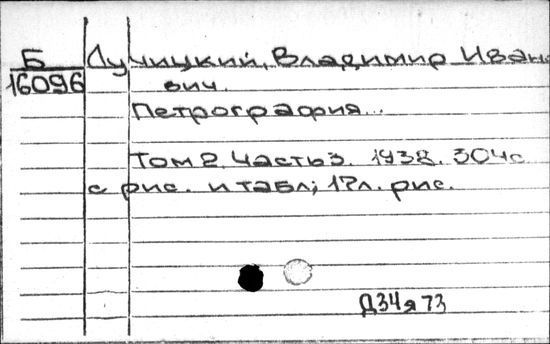 Б Лучицкий, Владимир Ивано
16096 вич.
Петрография...
Том 2, Часть 3. 1938. 304с
с рис. и табл; 17л. рис.
Д34я73